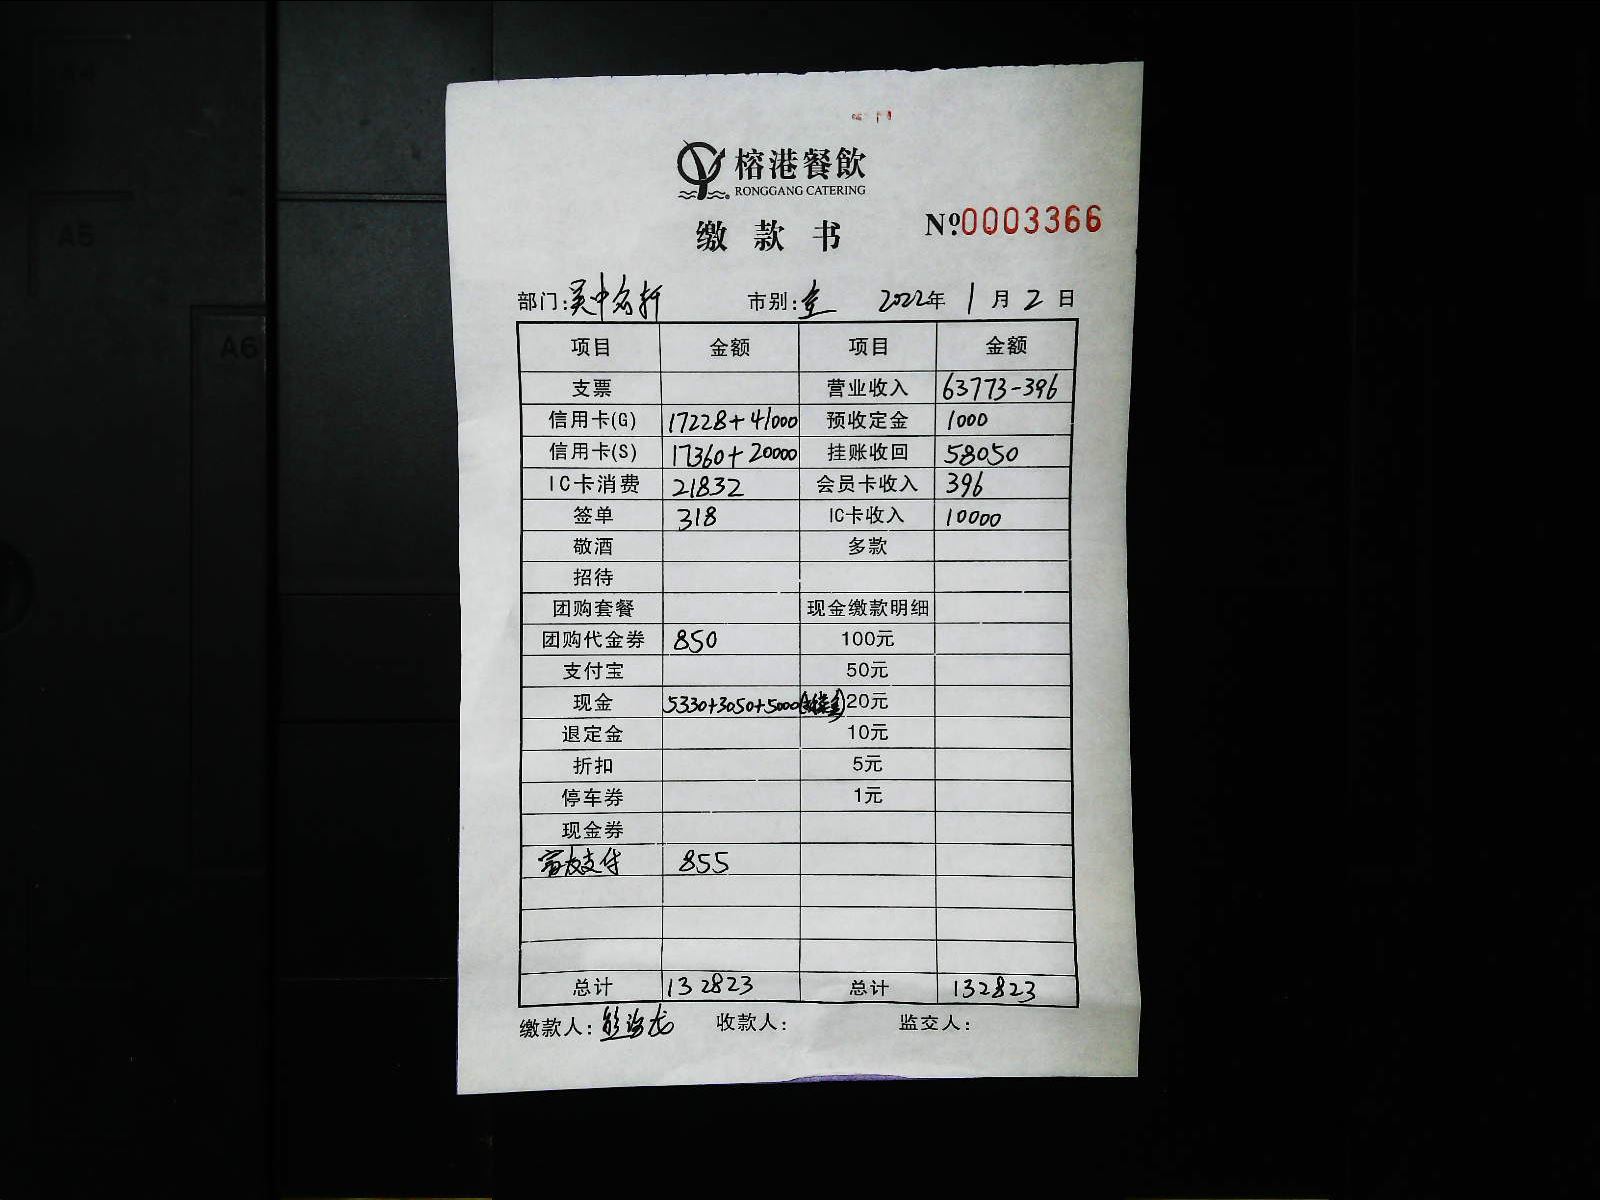 榕港餐飲
RONGGANG CATERING
缴款书
№0003366
部门:吴中名轩 市别: 2022年1月2日
项目 金额 项目 金额
支票 营业收入 63773-396
信用卡(G) 17228+41000 预收定金 1000
信用卡(S) 17360+20000 挂账收回 58050
IC卡消费 21832 会员卡收入 396
签单 318 IC卡收入 10000
敬酒 多款
招待
团购套餐 现金缴款明细
团购代金券 850 100元
支付宝 50元
现金 5330+3050+5000 20元
退定金 10元
折扣 5元
停车券 1元
现金券
支付 855
总计 132823 总计 132823
缴款人: 收款人: 监交人:
A5
A6